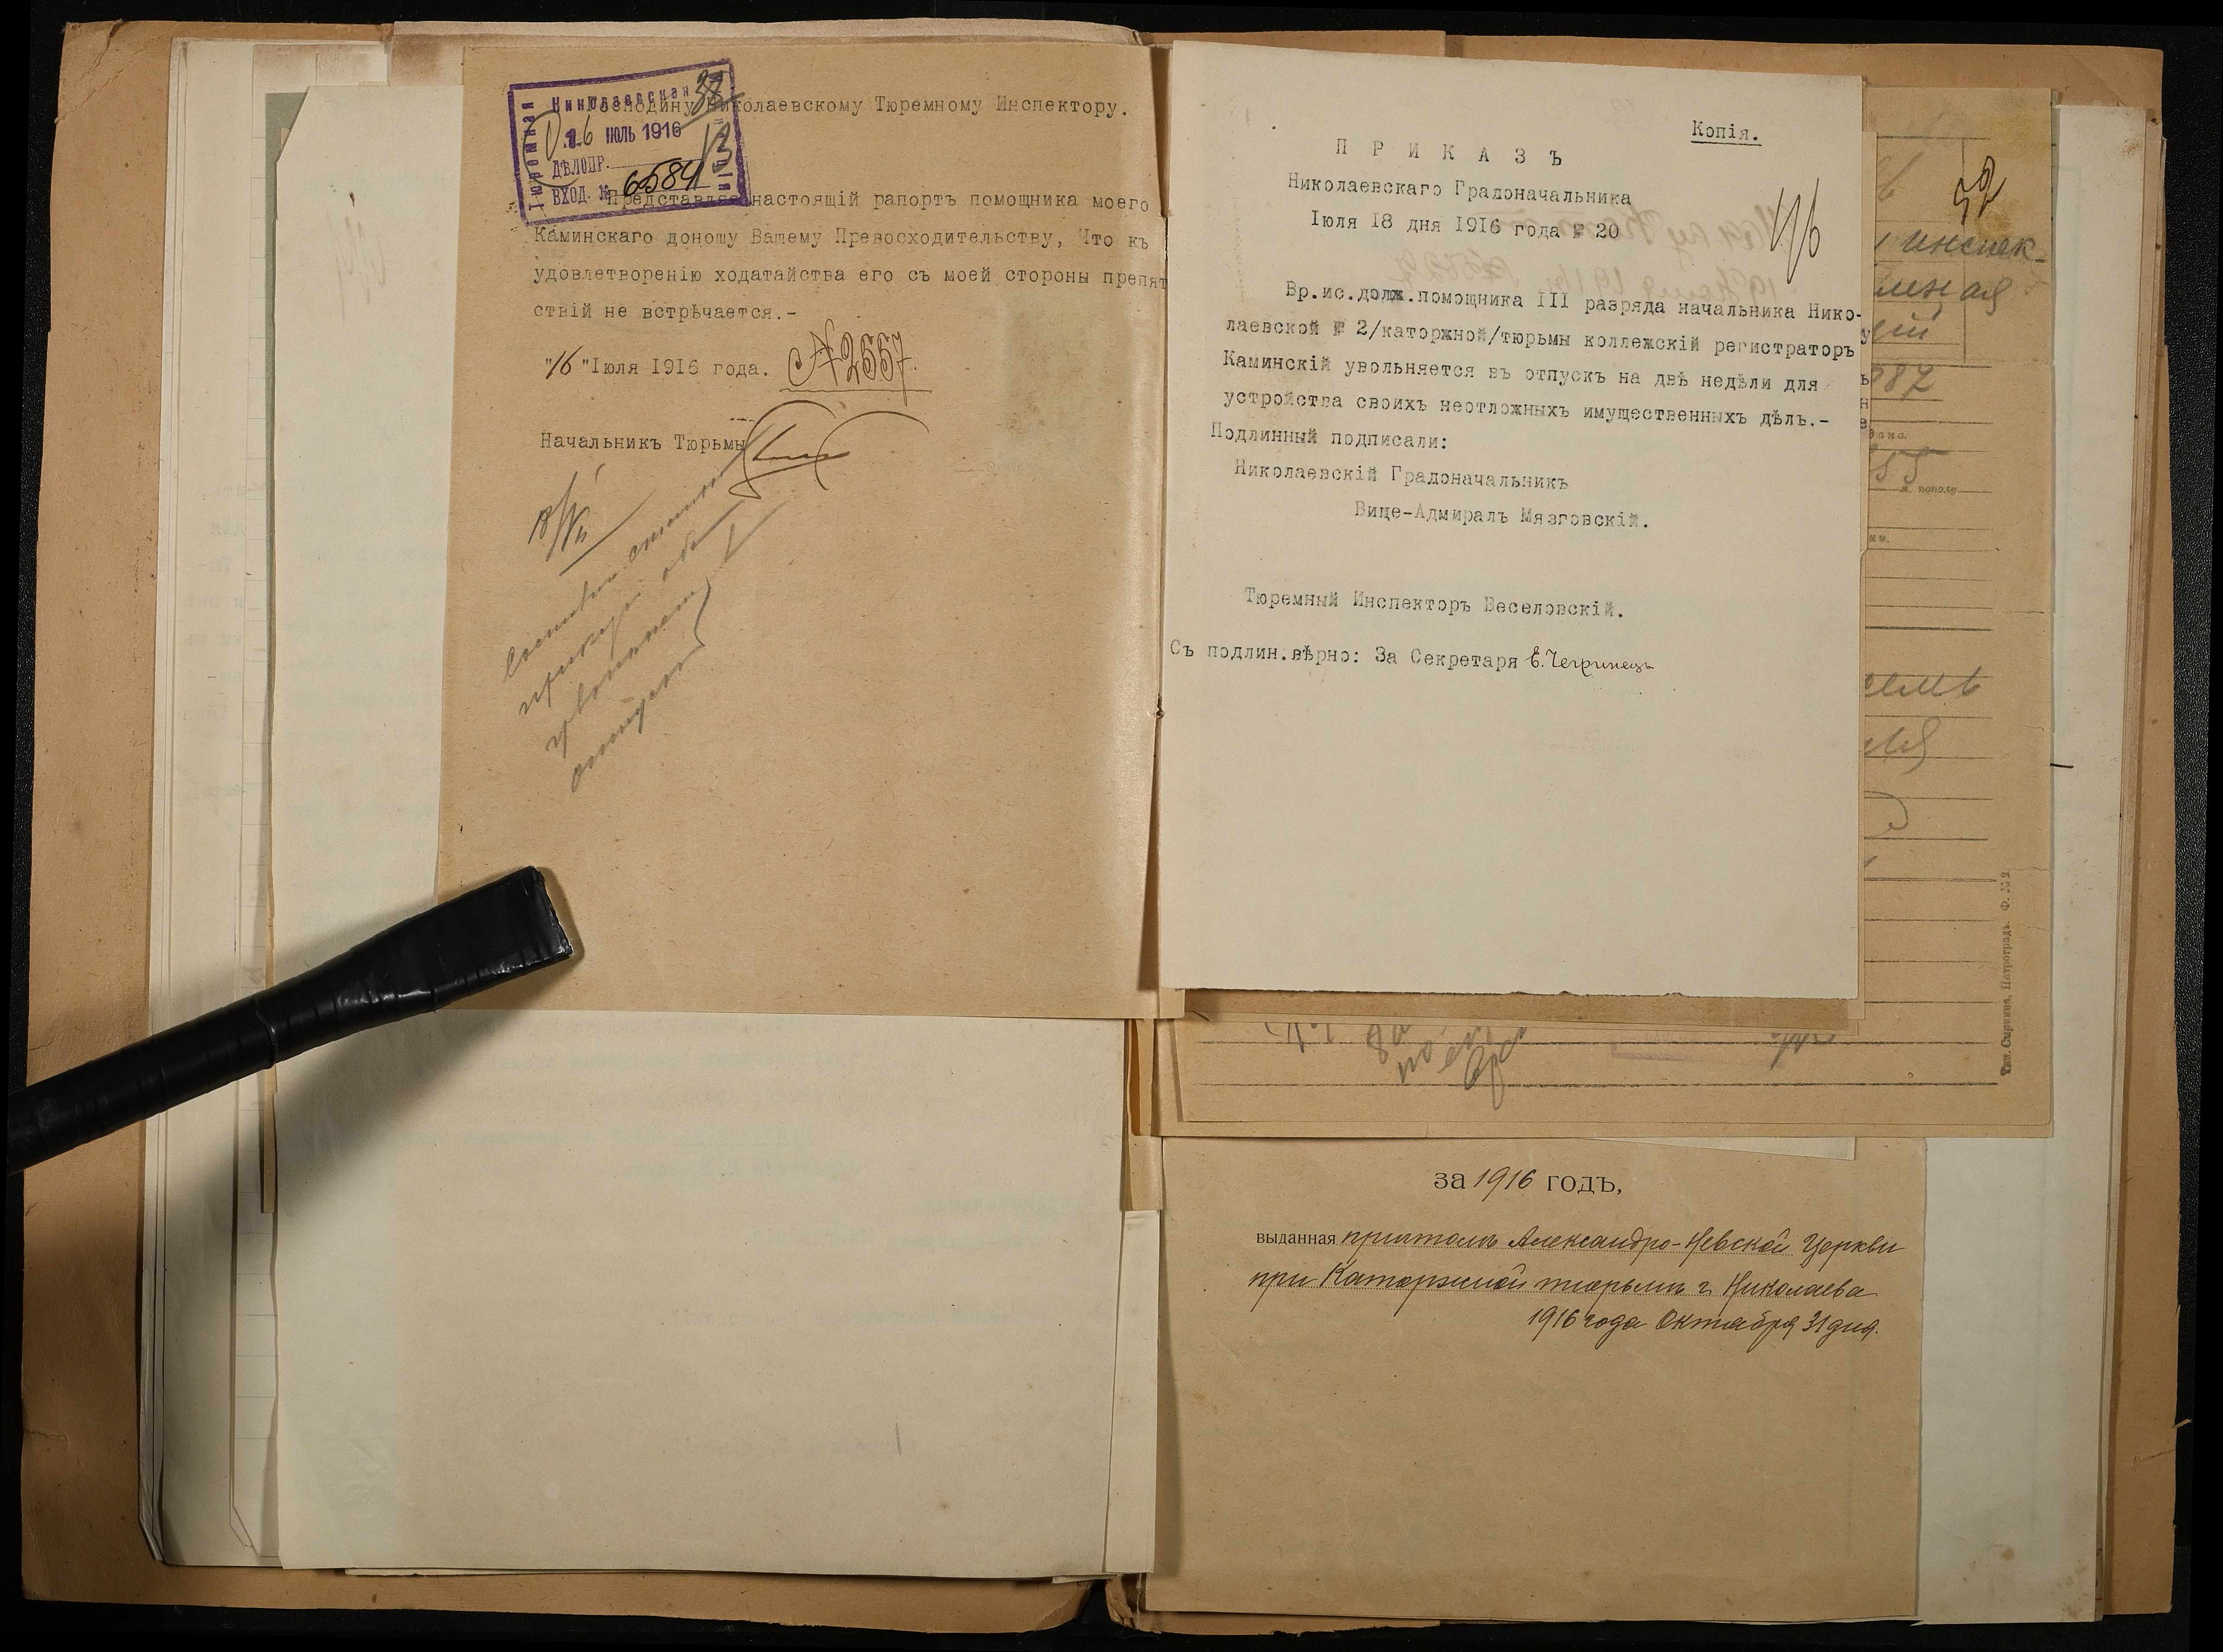 Господину Николаевскому Тюремному Инспектору.
Николаевская
Тюремная
16 ІЮЛЬ 1916
ДѢЛОПР.
ВХОД. № 6584
Представляя настоящій рапортъ помощника моего
Каминскаго доношу Вашему Превосходительству, Что къ
удовлетворенію ходатайства его съ моей стороны препят
ствій не встрѣчается.-
"16"Іюля 1916 года. № 2667.
Начальникъ Тюрьмы
18/VII
приказъ об
увольнении
отпускъ
Копія.
П Р И К А З Ъ
Николаевскаго Градоначальника
Іюля 18 дня 1916 года № 20
Вр.ис.долж.помощника III разряда начальника Нико-
лаевской № 2/каторжной/тюрьмы коллежскій регистраторъ
Каминскій увольняется въ отпускъ на двѣ недѣли для
устройства своихъ неотложныхъ имущественныхъ дѣлъ.-
Подлинный подписали:
Николаевскій Градоначальникъ
Вице-Адмиралъ Мязговскій.
Тюремный Инспекторъ Веселовскій.
Съ подлин.вѣрно: За Секретаря Е.Чегринецъ
52
инспек-
Тип. Сыркина, Петроградъ. Ф. № 2
за 1916 годъ,
выданная причтомъ Александро-Невской Церкви
при Каторжной тюрьмѣ г. Николаева
1916 года Октября 31 дня.